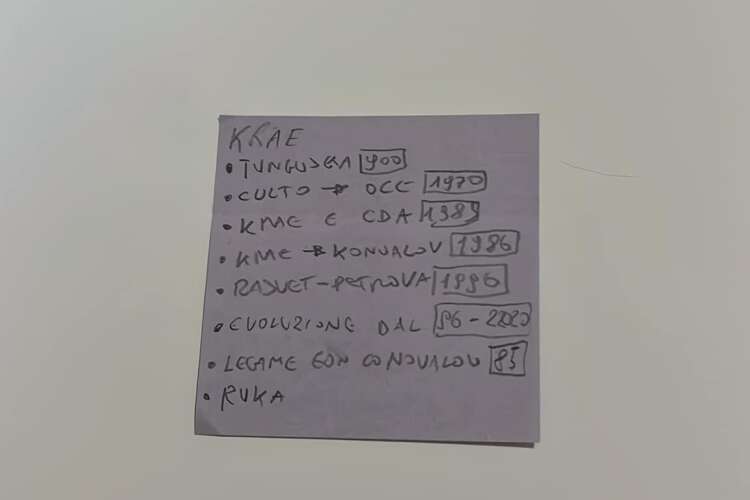 KRAE
• TUNGUSKA 900
• CULTO → OCC 1970
• KME E CDA 1989
• KME → KONVALOV 1986
• RASVET-PETROVA 1996
• EVOLUZIONE DAL 96-2020
• LEGAME CON CONOVALOV 85
• RUKA